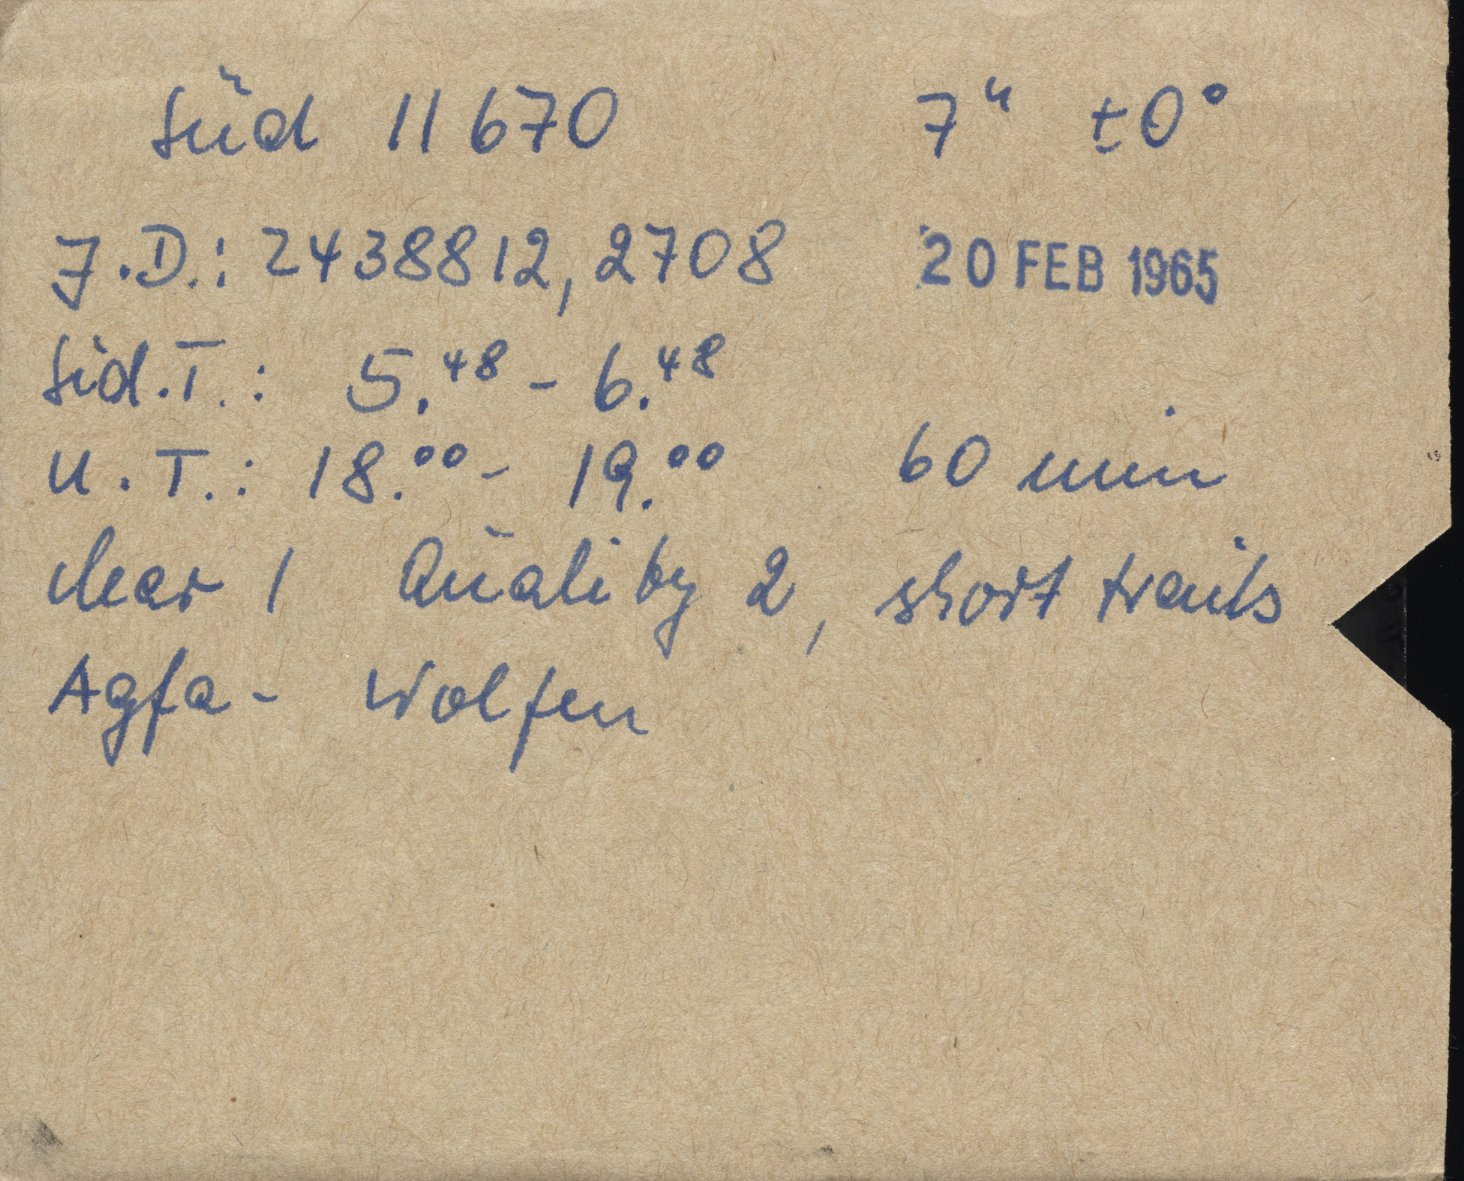 Süd 11670 7ʰ ±0°
J.D.: 2438812,2708 20 FEB 1965
Sid.T.: 5.⁴⁸ - 6.⁴⁸
U.T.: 18.⁰⁰ - 19.⁰⁰ 60 min
clear 1 Quality 2, short trails
Agfa- Wolfen